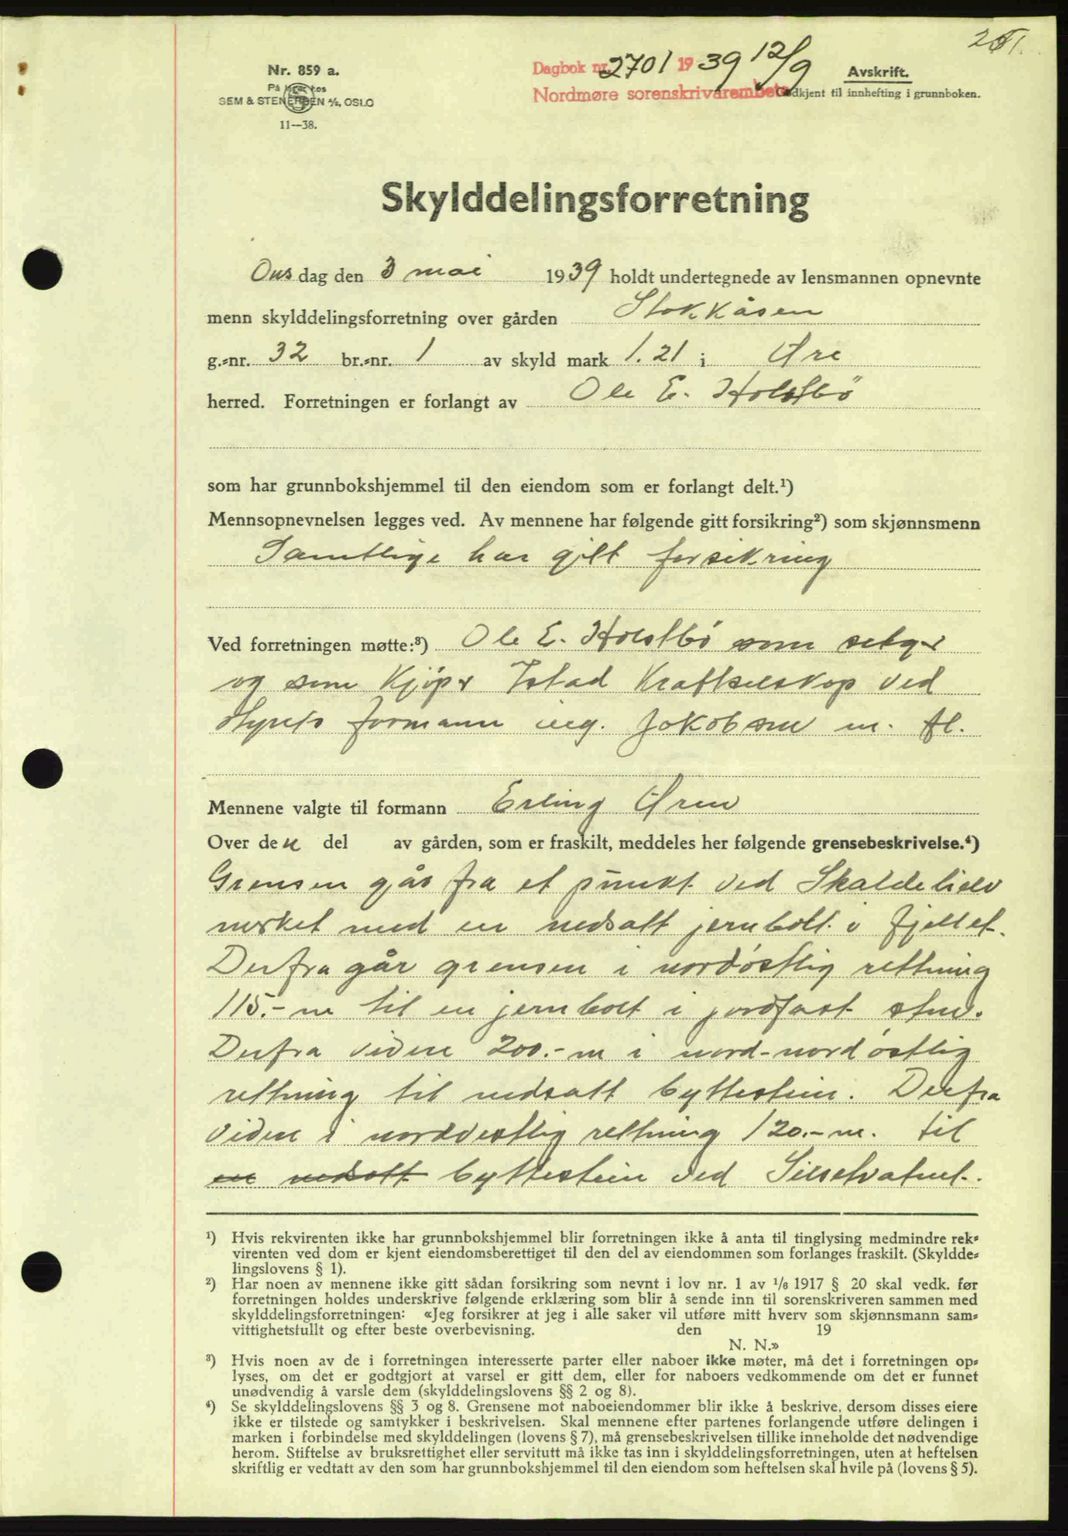 251.
Nr. 859 a.
På lager hos
SEM & STENERSEN A/S, OSLO
11—38.
Dagbok nr. 2701 1939 12/9
Nordmøre sorenskriverembete
Avskrift.
Godkjent til innhefting i grunnboken.
Skylddelingsforretning
Onsdag den 3 mai 1939 holdt undertegnede av lensmannen opnevnte
menn skylddelingsforretning over gården Stokkåsen
g.-nr. 32 br.-nr. 1 av skyld mark 1.21 i Øre
herred. Forretningen er forlangt av Ole E. Holstbö
som har grunnbokshjemmel til den eiendom som er forlangt delt.¹)
Mennsopnevnelsen legges ved. Av mennene har følgende gitt forsikring²) som skjønnsmenn
Samtlige har gitt forsikring
Ved forretningen møtte:³) Ole E. Holstbö som selger
og som kjöper Istad Kraftselskap ved
styrets formann ing. Jakobsen m. fl.
Mennene valgte til formann Erling Øren
Over den del av gården, som er fraskilt, meddeles her følgende grensebeskrivelse.⁴)
Grensen går fra et punkt ved
merket med en nedsatt jernbolt i fjellet.
Derfra går grensen i nordöstlig rettning
115.- m til en jernbolt i jordfast sten.
Derfra videre 200.- m i nord-nordöstlig
rettning til nedsatt byttestein. Derfra
videre i nordvestlig rettning 120.- m. til
en nedsatt byttestein ved Silsetvatnet.
¹) Hvis rekvirenten ikke har grunnbokshjemmel blir forretningen ikke å anta til tinglysing medmindre rek-
virenten ved dom er kjent eiendomsberettiget til den del av eiendommen som forlanges fraskilt. (Skyldde-
lingslovens § 1).
²) Har noen av mennene ikke gitt sådan forsikring som nevnt i lov nr. 1 av 1/6 1917 § 20 skal vedk. før
forretningen holdes underskrive følgende erklæring som blir å sende inn til sorenskriveren sammen med
skylddelingsforretningen: «Jeg forsikrer at jeg i alle saker vil utføre mitt hverv som skjønnsmann sam-
vittighetsfullt og efter beste overbevisning. den 19
N. N.»
³) Hvis noen av de i forretningen interesserte parter eller naboer ikke møter, må det i forretningen op-
lyses, om det er godtgjort at varsel er gitt dem, eller for naboers vedkommende om det er funnet
unødvendig å varsle dem (skylddelingslovens §§ 2 og 8).
⁴) Se skylddelingslovens §§ 3 og 8. Grensene mot naboeiendommer blir ikke å beskrive, dersom disses eiere
ikke er tilstede og samtykker i beskrivelsen. Skal mennene efter partenes forlangende utføre delingen i
marken i forbindelse med skylddelingen (lovens § 7), må grensebeskrivelsen tillike inneholde det nødvendige
herom. Stiftelse av bruksrettighet eller servitutt må ikke tas inn i skylddelingsforretningen, uten at heftelsen
skriftlig er vedtatt av den som har grunnbokshjemmel til den eiendom som heftelsen skal hvile på (lovens § 5).